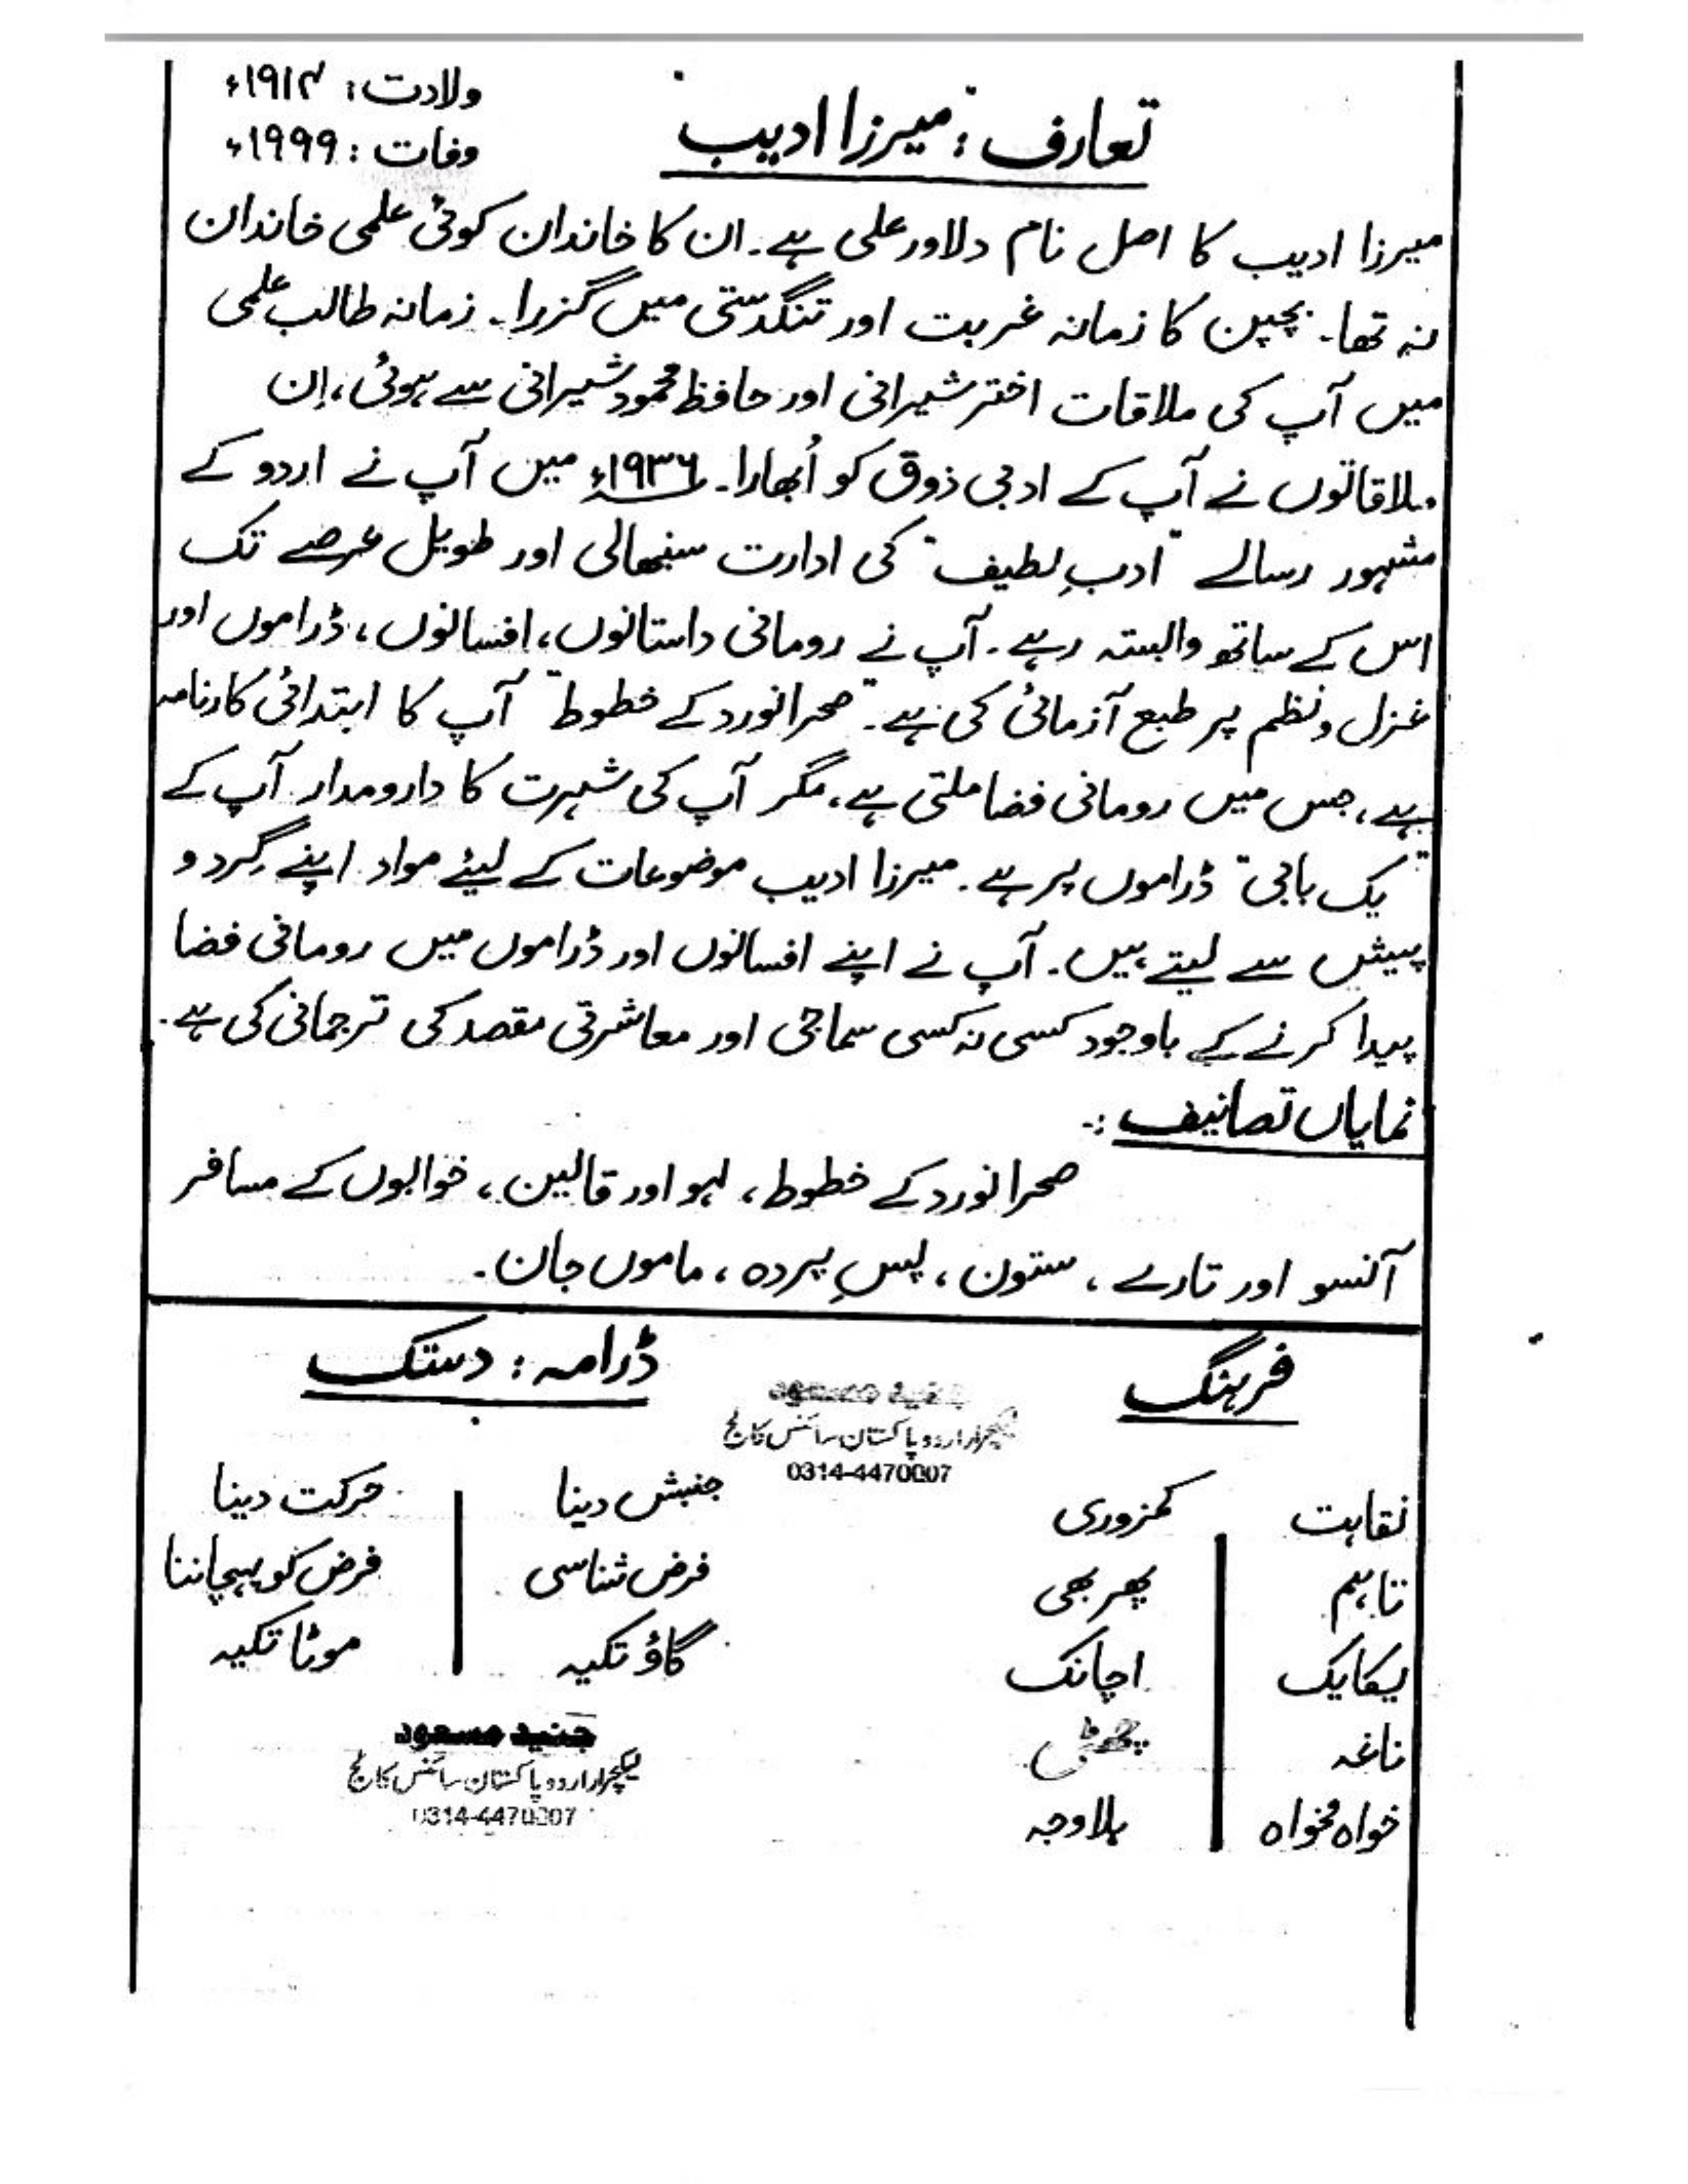 تعارف: "میرزا ادیب"
ولادت: ۱۹۱۴ء
وفات: ۱۹۹۹ء
میرزا ادیب کا اصل نام دلاور علی ہے۔ ان کا خاندان کوئی علمی خاندان
نہ تھا۔ بچپن کا زمانہ غربت اور تنگدستی میں گزرا۔ زمانہ طالب علمی
میں آپ کی ملاقات اختر شیرانی اور حافظ محمود شیرانی سے ہوئی، اِن
ملاقاتوں نے آپ کے ادبی ذوق کو اُبھارا۔ ۱۹۳۶ء میں آپ نے اردو کے
مشہور رسالے "ادبِ لطیف" کی ادارت سنبھالی اور طویل عرصے تک
اس کے ساتھ وابستہ رہے۔ آپ نے رومانی داستانوں، افسانوں، ڈراموں اور
غزل و نظم پر طبع آزمائی کی ہے۔ "صحرا نورد کے خطوط" آپ کا ابتدائی کارنامہ
ہے، جس میں رومانی فضا ملتی ہے، مگر آپ کی شہرت کا دارومدار آپ کے
"یک بابی" ڈراموں پر ہے۔ میرزا ادیب موضوعات کے لیئے مواد اپنے گِرد و
پیش سے لیتے ہیں۔ آپ نے اپنے افسانوں اور ڈراموں میں رومانی فضا
پیدا کرنے کے باوجود کسی نہ کسی سماجی اور معاشرتی مقصد کی ترجمانی کی ہے۔
نمایاں تصانیف :-
صحرا نورد کے خطوط، لہو اور قالین، خوابوں کے مسافر
آنسو اور تارے، ستون، پسِ پردہ، ماموں جان۔
فرہنگ
ڈرامہ: دستک
جنید مسعود
لیکچرار اردو پاکستان سائنس کالج
0314-4470007
نقاہت کمزوری
تاہم پھر بھی
یکایک اچانک
ناغہ چھٹی
خواہ مخواہ بلاوجہ
جنبش دینا حرکت دینا
فرض شناسی فرض کو پہچاننا
گاؤ تکیہ موٹا تکیہ
جنید مسعود
لیکچرار اردو پاکستان سائنس کالج
0314-4470007